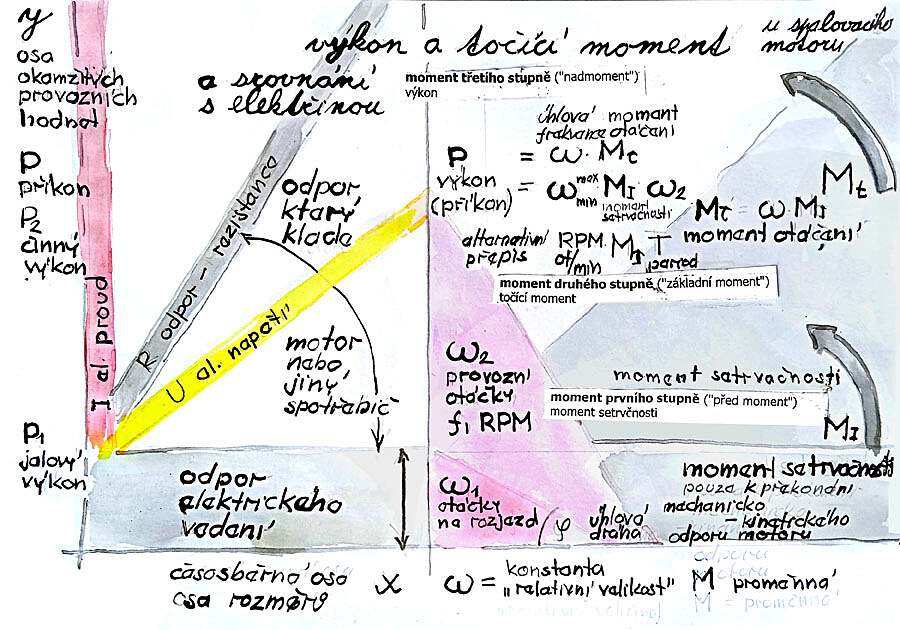 y
osa
okamžitých
provozních
hodnot
výkon a točící moment
u spalovacího
motoru
a srovnání
s elektřinou
moment třetího stupně ("nadmoment")
výkon
úhlová moment
frekvence otáčení
P = ω · Mt
výkon
(příkon)
= ω max min MI ω2
moment
setrvačnosti
Mt = ω MI
moment otáčení
Mt
alternativní
přepis
RPM MI T
ot/min
perrod
moment druhého stupně ("základní moment")
točící moment
P
příkon
P2
činný
výkon
I el. proud
R odpor - rezistance
U el. napětí
odpor
který
klade
motor
nebo
jiný
spotřebič
ω2
provozní
otáčky
f1 RPM
moment setrvačnosti
moment prvního stupně ("před moment")
moment setrvčnosti
MI
P1
jalový
výkon
odpor
elektrického
vedení
ω1
otáčky
na rozjezd
φ úhlová
dráha
moment setrvačnosti
pouze k překonání
mechanicko
- kinetického
odporu motoru
odporu
motoru
časosběrná osa
osa rozměrů
x
ω = konstanta
"relativní velikost"
M proměnná
M = proměnná